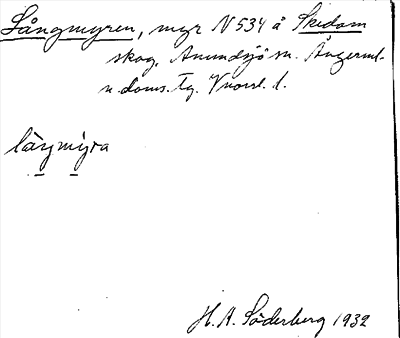 Långmyren, myr N 534 å Skedom
skog, Anundsjö sn. Ångerml.
n. doms. tg. Vnorrl. l.
làŋmýra
H. A. Söderberg 1932